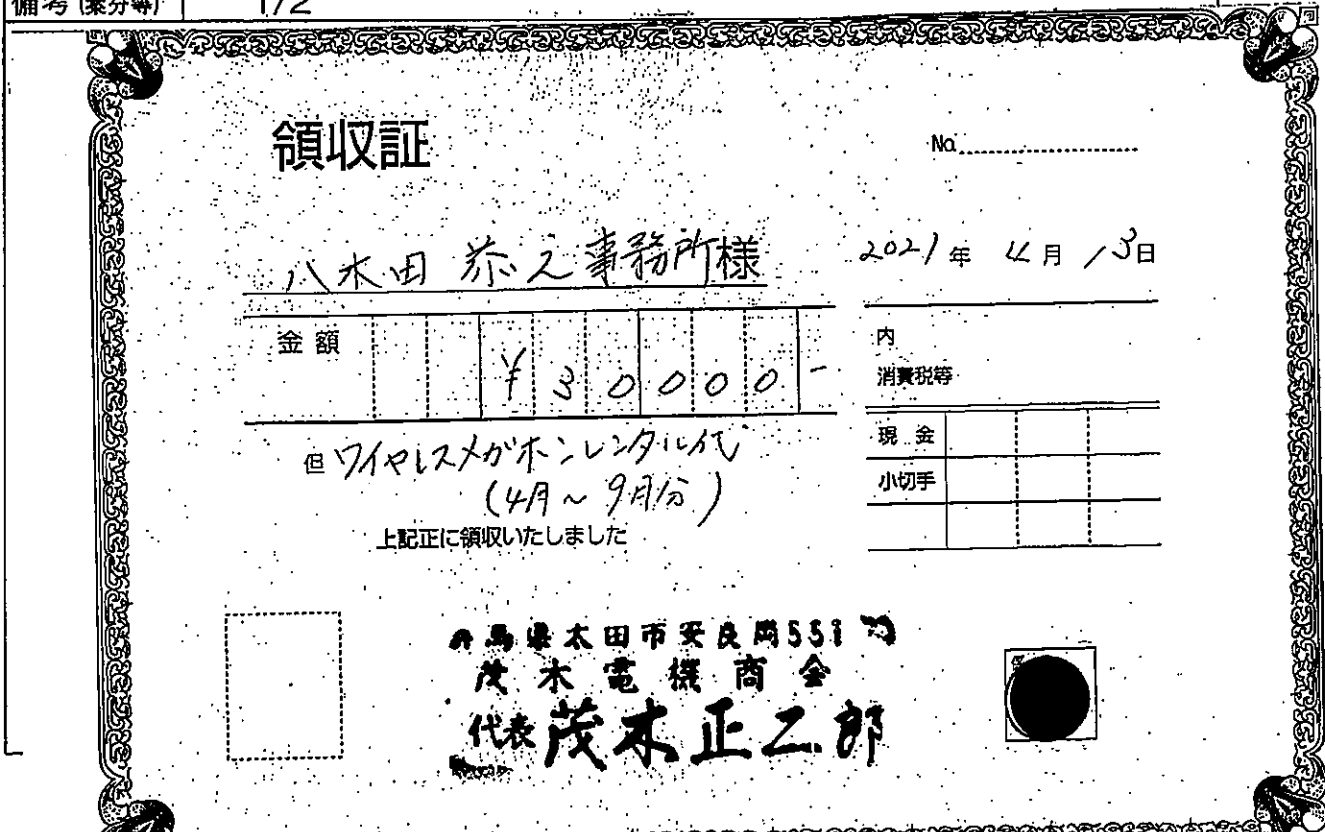 備考(案分等) 1/2
領収証
No.
八木田 恭之事務所様
2021年 4月 13日
金額 ¥30000-
内
消費税等
現金
小切手
但 ワイヤレスメガホンレンタル代
(4月～9月分)
上記正に領収いたしました
群馬県太田市安良岡551
茂木電機商会
代表 茂木正二郎